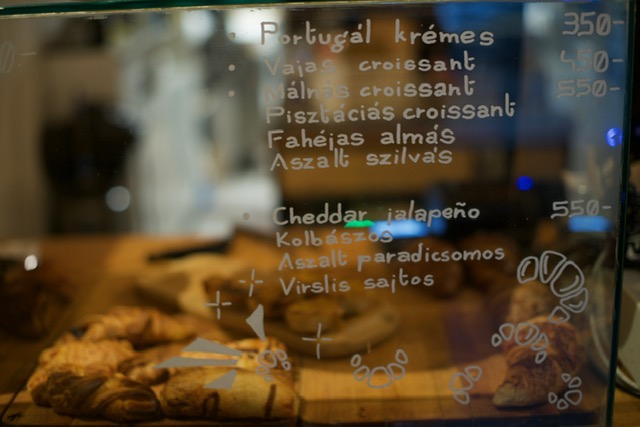 • Portugál krémes 350-
• Vajas croissant 450-
• Málnás croissant 550-
Pisztáciás croissant
Fahéjas almás
Aszalt szilvás
• Cheddar jalapeño 550-
Kolbászos
Aszalt paradicsomos
Virslis sajtos